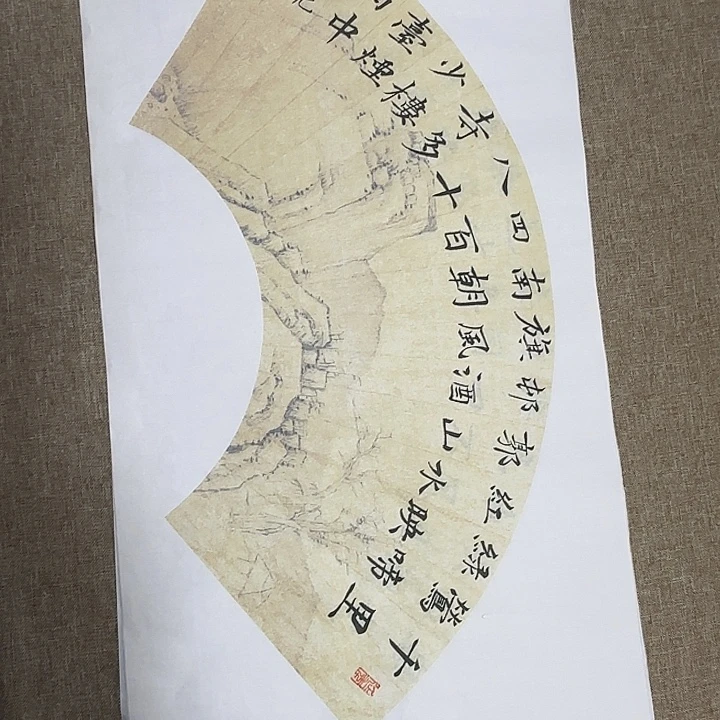 千里
鶯啼
綠映
紅水
郭山
邨酒
旗風
南朝
四百
八十
寺多
少樓
臺煙
中